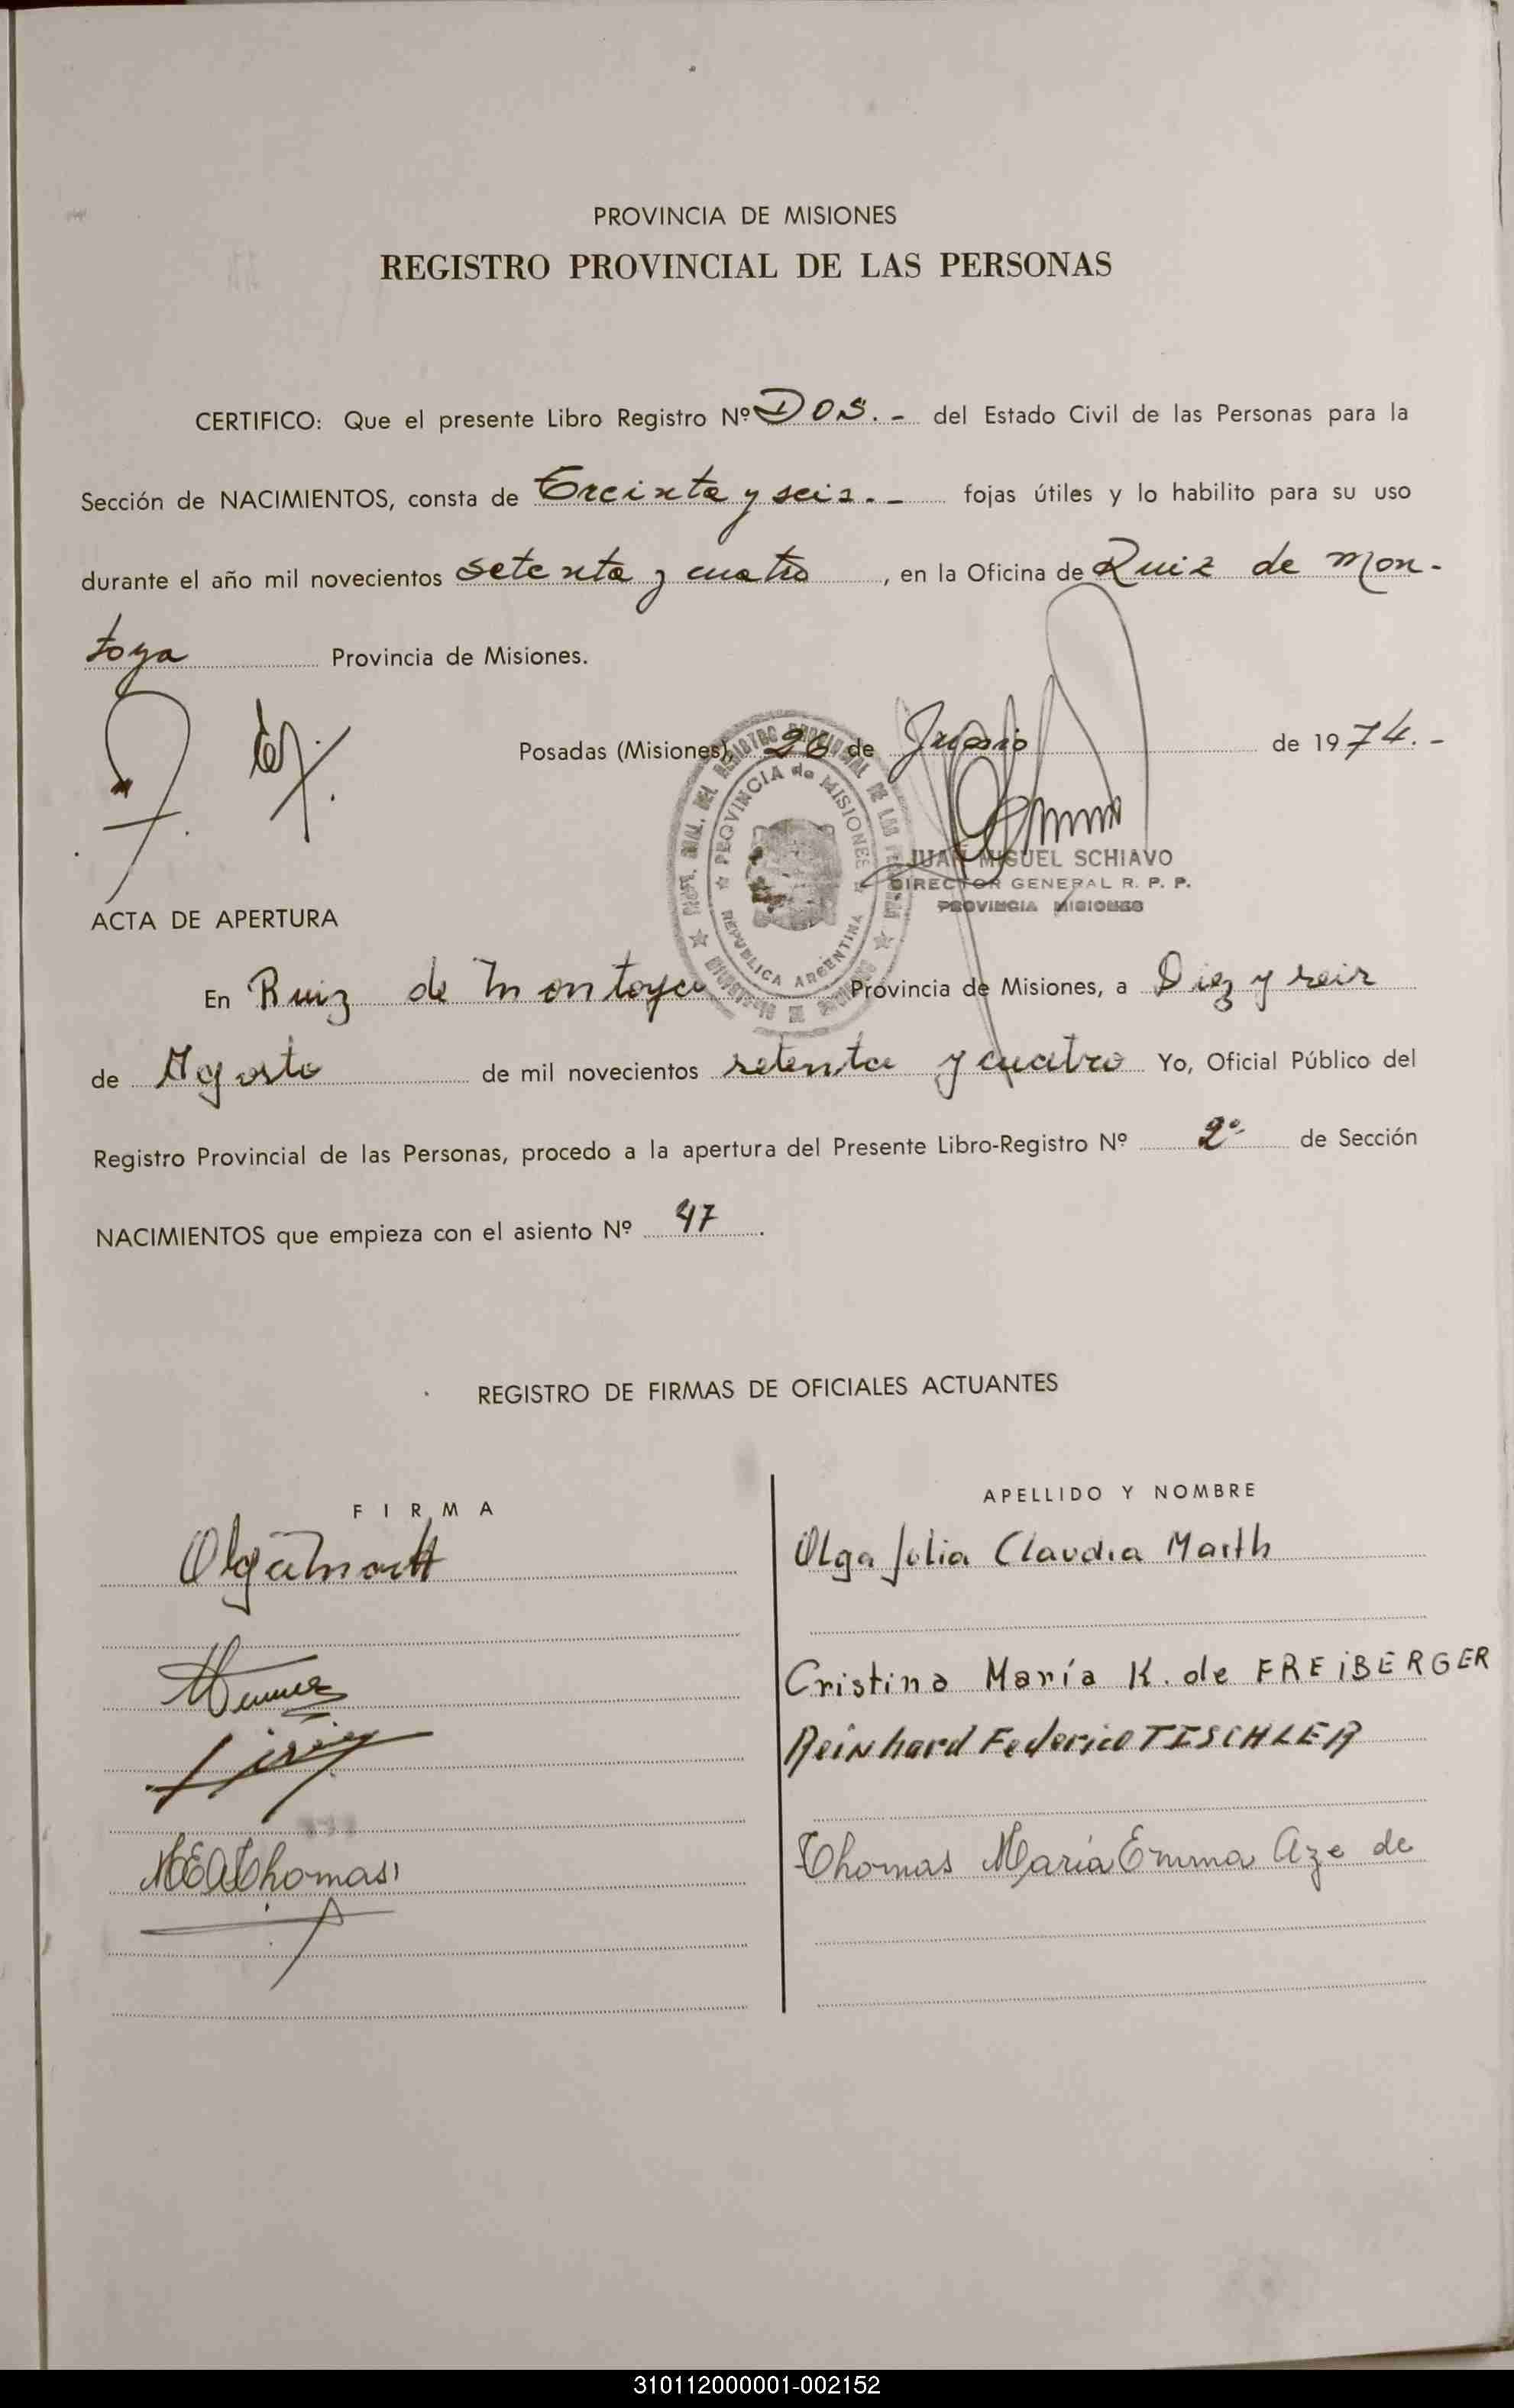 PROVINCIA DE MISIONES
REGISTRO PROVINCIAL DE LAS PERSONAS
CERTIFICO: Que el presente Libro Registro Nº DOS.- del Estado Civil de las Personas para la
Sección de NACIMIENTOS, consta de Treinta y seis.- fojas útiles y lo habilito para su uso
durante el año mil novecientos setenta y cuatro, en la Oficina de Ruiz de Mon-
toya Provincia de Misiones.
Posadas (Misiones), 26 de de 1974.-
PROVINCIA de MISIONES
REPUBLICA ARGENTINA
JUAN MIGUEL SCHIAVO
DIRECTOR GENERAL R. P. P.
PROVINCIA MISIONES
ACTA DE APERTURA
En Ruiz de Montoya Provincia de Misiones, a Diez y seis
de Agosto de mil novecientos setenta y cuatro Yo, Oficial Público del
Registro Provincial de las Personas, procedo a la apertura del Presente Libro-Registro Nº 2º de Sección
NACIMIENTOS que empieza con el asiento Nº 47.
REGISTRO DE FIRMAS DE OFICIALES ACTUANTES
FIRMA
APELLIDO Y NOMBRE
Olga Marth
Olga Julia Claudia Marth
Cristina María K. de FREIBERGER
Reinhard Federico TISCHLER
MEAThomas
Thomas María Emma Aze de
310112000001-002152